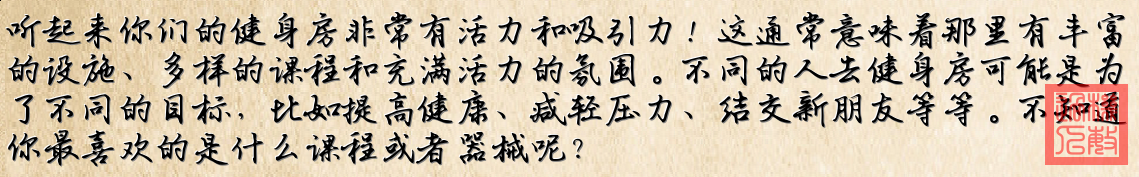 听起来你们的健身房非常有活力和吸引力！这通常意味着那里有丰富
的设施、多样的课程和充满活力的氛围。不同的人去健身房可能是为
了不同的目标，比如提高健康、减轻压力、结交新朋友等等。不知道
你最喜欢的是什么课程或者器械呢？